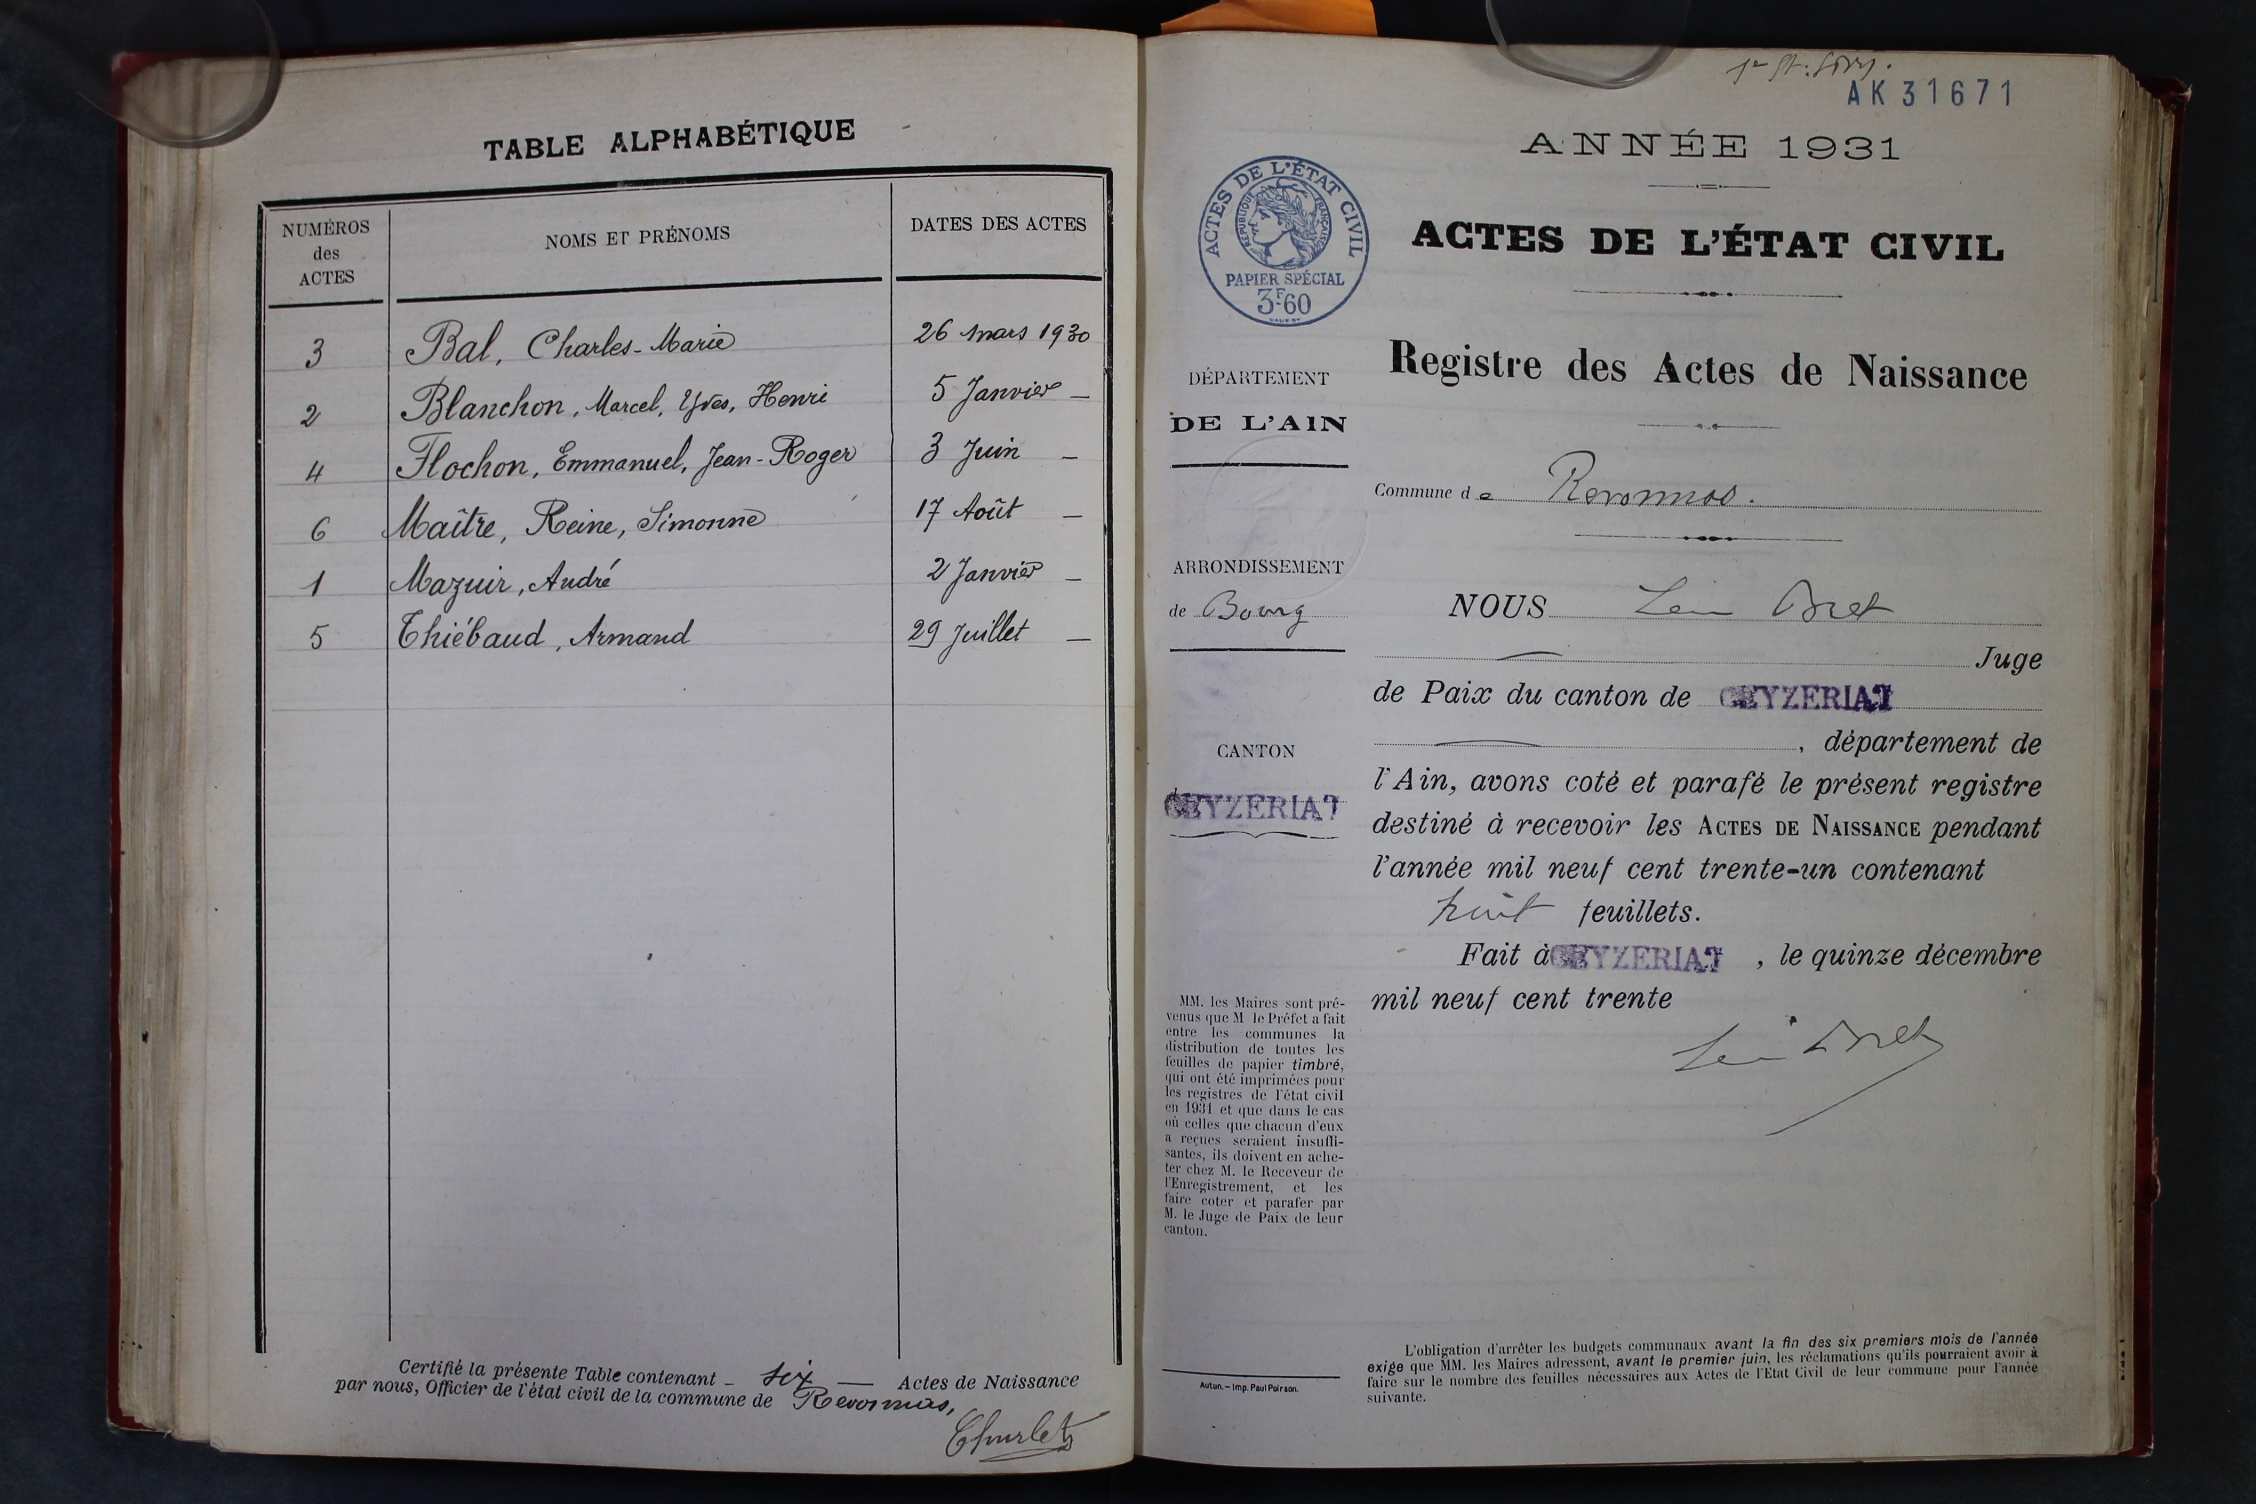 TABLE ALPHABÉTIQUE
NUMÉROS des ACTES
NOMS ET PRÉNOMS
DATES DES ACTES
3 Bal, Charles-Marie 26 mars 1930
2 Blanchon, Marcel, Yves, Henri 5 Janvier —
4 Flochon, Emmanuel, Jean-Roger 3 Juin —
6 Maître, Reine, Simonne 17 Août —
1 Mazuir, André 2 Janvier —
5 Thiébaud, Armand 29 Juillet —
Certifié la présente Table contenant — six — Actes de Naissance
par nous, Officier de l'état civil de la commune de Revonnas,
AK 31671
ANNÉE 1931
ACTES DE L'ÉTAT CIVIL
RÉPUBLIQUE FRANÇAISE
PAPIER SPÉCIAL
3F60
ACTES DE L'ÉTAT CIVIL
Registre des Actes de Naissance
DÉPARTEMENT
DE L'AIN
Commune de Revonnas.
ARRONDISSEMENT
de Bourg
CANTON
CEYZERIAT
MM. les Maires sont pré-
venus que M le Préfet a fait
entre les communes la
distribution de toutes les
feuilles de papier timbré,
qui ont été imprimées pour
les registres de l'état civil
en 1931 et que dans le cas
où celles que chacun d'eux
a reçues seraient insuffi-
santes, ils doivent en ache-
ter chez M. le Receveur de
l'Enregistrement, et les
faire coter et parafer par
M. le Juge de Paix de leur
canton.
Autun. — Imp. Paul Poirson.
NOUS Léon Bret
Juge
de Paix du canton de CEYZERIAT
, département de
l'Ain, avons coté et parafé le présent registre
destiné à recevoir les ACTES DE NAISSANCE pendant
l'année mil neuf cent trente-un contenant
huit feuillets.
Fait à CEYZERIAT, le quinze décembre
mil neuf cent trente
Léon Bret
L'obligation d'arrêter les budgets communaux avant la fin des six premiers mois de l'année
exige que MM. les Maires adressent, avant le premier juin, les réclamations qu'ils pourraient avoir à
faire sur le nombre des feuilles nécessaires aux Actes de l'Etat Civil de leur commune pour l'année
suivante.